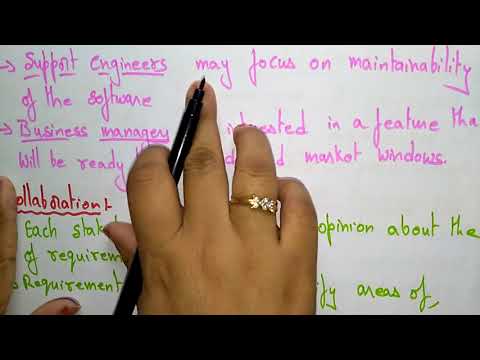 → Support engineers may focus on maintainability
of the software
→ Business managey in a feature tha
will be ready market windows.
ollaboration
Each opinion about the
of
Requirement areas of